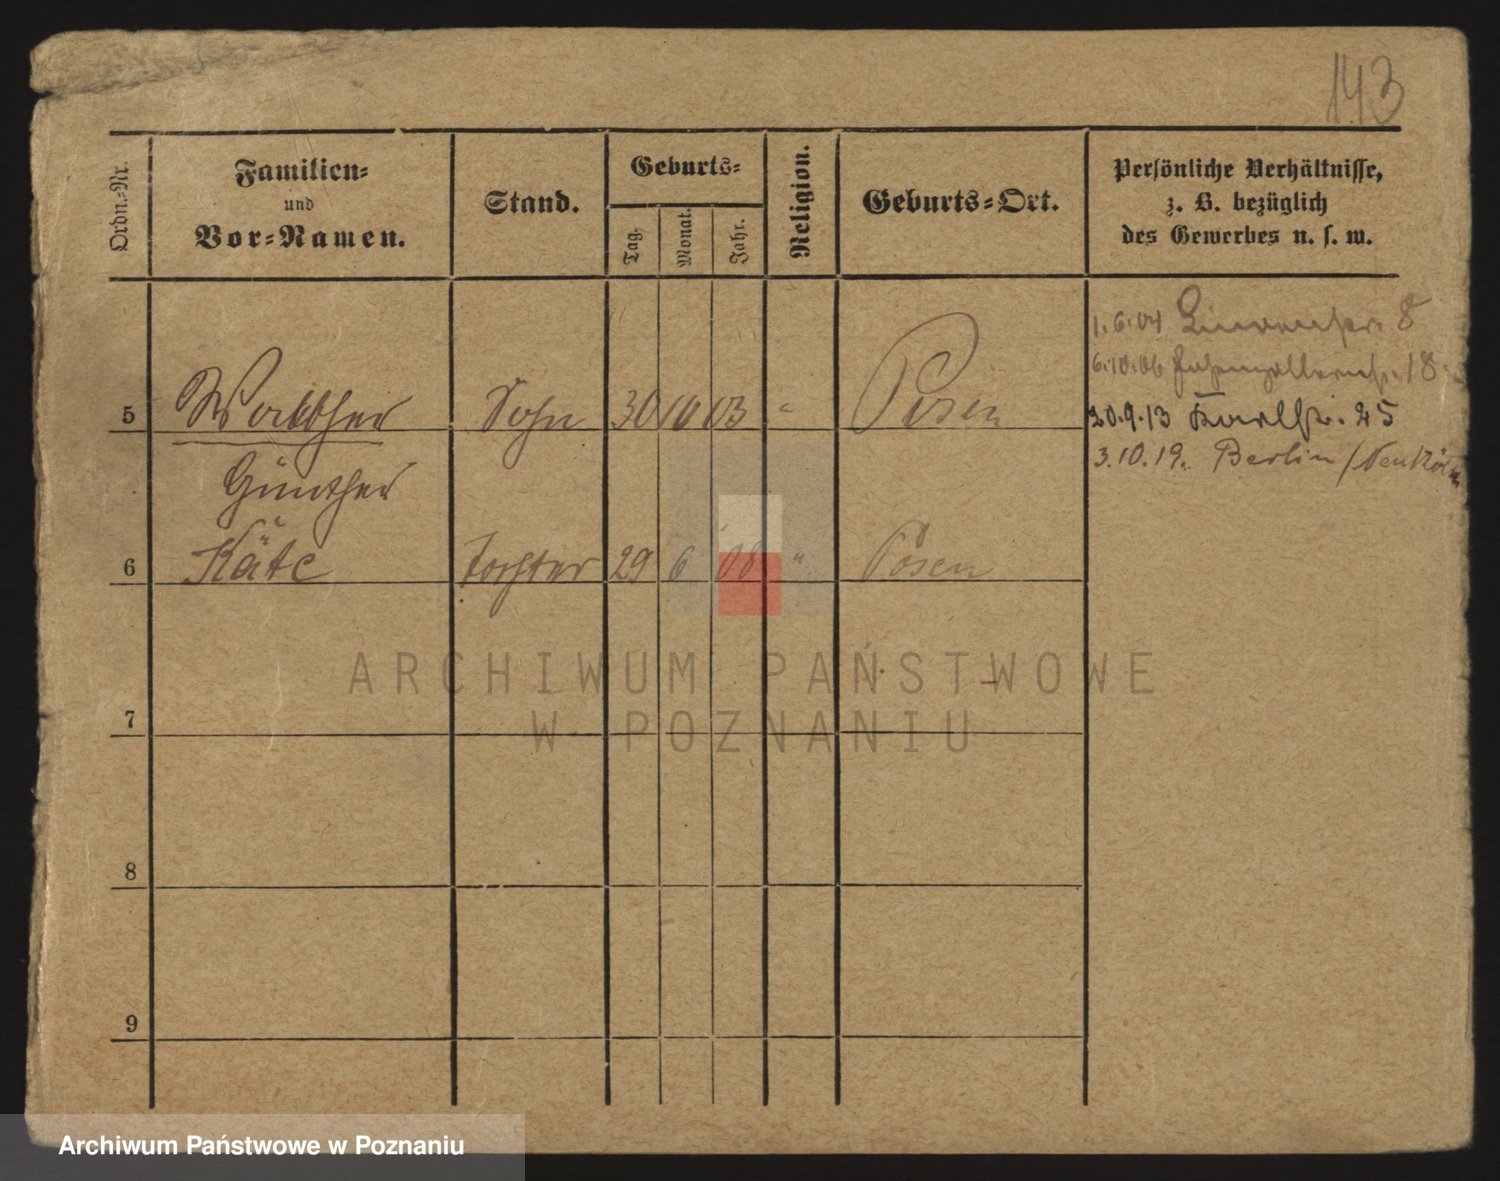 143
Ordn.-Nr.
Familien-
und
Vor-Namen.
Stand.
Geburts-
Tag.
Monat.
Jahr.
Religion.
Geburts-Ort.
Persönliche Verhältnisse,
z. B. bezüglich
des Gewerbes u. s. w.
1.6.04 8
6.10.06 Hohenzollernstr. 18
5 Walther Sohn 30 10 03 " Posen
20.9.13 Karlstr. 25
3.10.19. Berlin / Neukölln
Günther
6 Käte Tochter 29 6 06 " Posen
ARCHIWUM PAŃSTWOWE
W POZNANIU
7
8
9
Archiwum Państwowe w Poznaniu